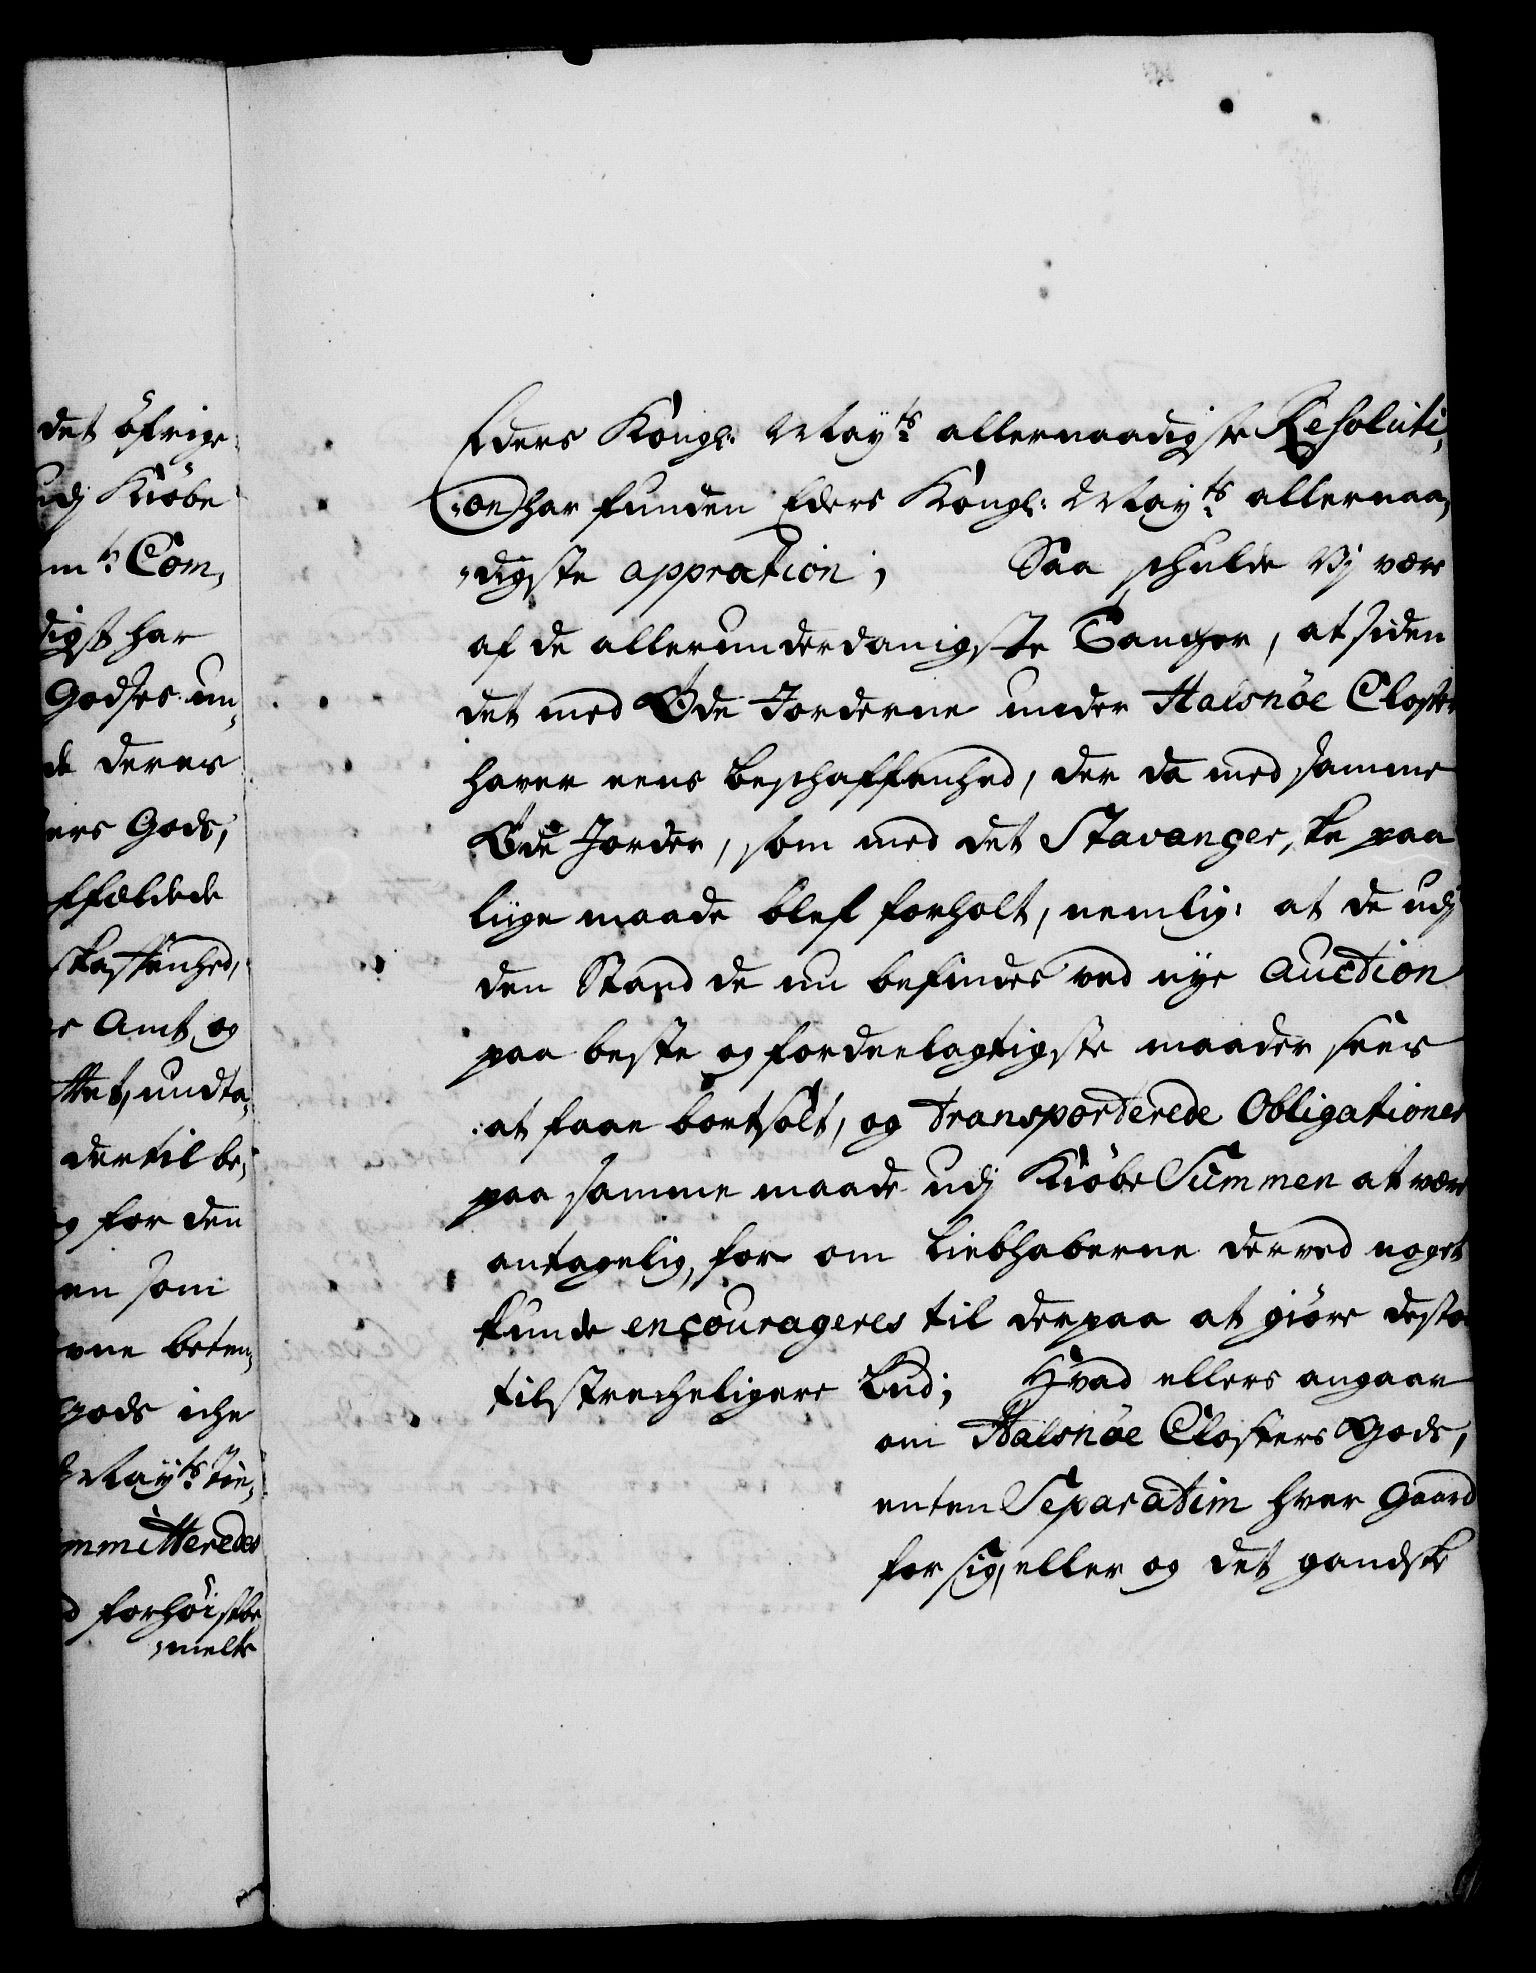 det öfrige
udj Kiöbe
mts Com,
digst har
Godses un,
de deres
ers Gods,
ffældede
skaffenhed,
e Amt og
ttet, undta,
dertil be,
g for den
en som
vne beten,
gods iche
Mayts Tie,
mmitterede
d forhöistbe
,melte
Eders Kongl: Mayts allernaadigste Resoluti,
,on har funden Eders Kongl: Mayts allernaa,
,digste appration; Saa schulde Vj være
af de allerunderdanigste Tancher, at siden
det med Øde Jorderne under Halsnöe Closter
haver eens beschaffenhed, der da med samme
Øde Jorder, som med det Stavanger,ske paa
liige maade blef forholt, nemlig: at de udj
den Stand de nu befindes ved nye Auction
paa beste og fordeelagtigste maader søges
at faae bortsolt, og transporterede Obligationer
paa samme maade udj Kiöbe Summen at være
antagelig, for om Liebhaberne derved noget
kunde encourageres til derpaa at giöre desto
tilstrecheligere bud; Hvad ellers angaar
om Halsnöe Closters Gods,
enten Separatim hver Gaard
for sig, eller og det gandske